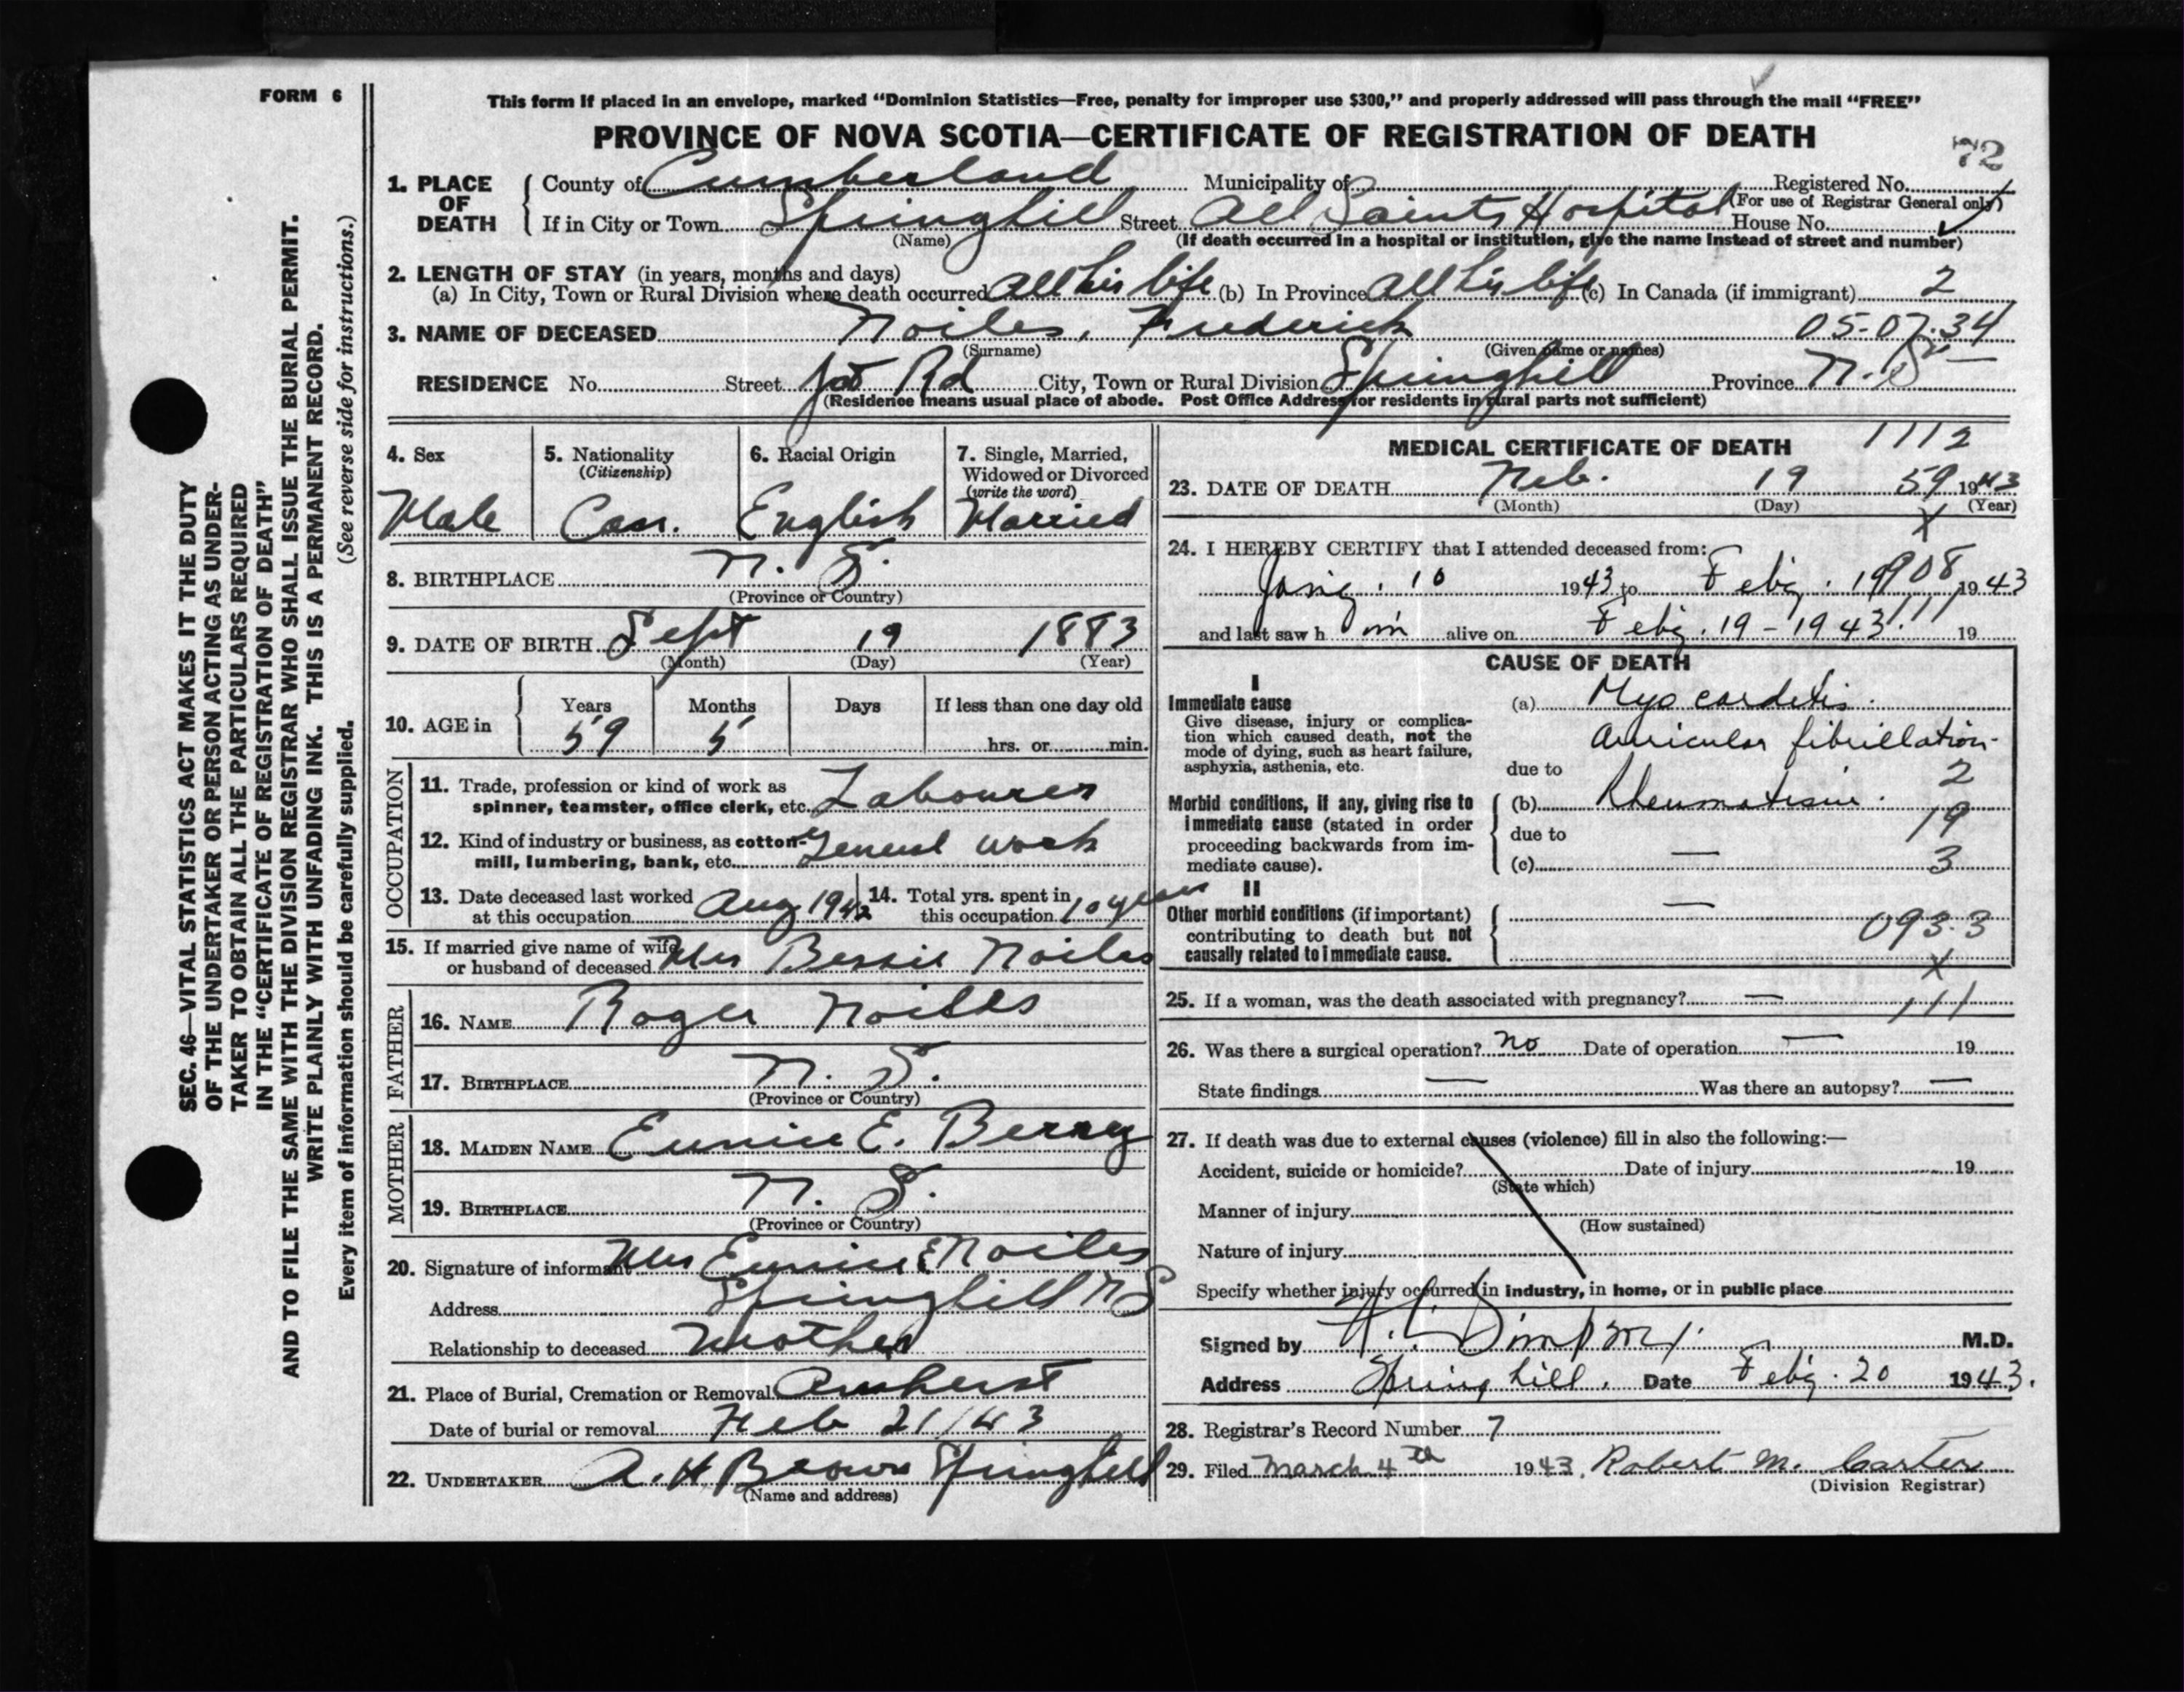 FORM 6
This form if placed in an envelope, marked "Dominion Statistics—Free, penalty for improper use $300," and properly addressed will pass through the mail "FREE"
PROVINCE OF NOVA SCOTIA—CERTIFICATE OF REGISTRATION OF DEATH
72
1. PLACE OF DEATH County of Cumberland Municipality of Registered No.
(For use of Registrar General only)
If in City or Town Springhill Street All Saints Hospital House No.
(Name) (If death occurred in a hospital or institution, give the name instead of street and number)
2. LENGTH OF STAY (in years, months and days)
(a) In City, Town or Rural Division where death occurred All his life (b) In Province All his life (c) In Canada (if immigrant) 2
3. NAME OF DECEASED Noiles, Frederick 05-07-34
(Surname) (Given name or names)
RESIDENCE No. Street Rd City, Town or Rural Division Springhill Province N.S.
(Residence means usual place of abode. Post Office Address for residents in rural parts not sufficient)
4. Sex Male
5. Nationality (Citizenship) Can.
6. Racial Origin English
7. Single, Married, Widowed or Divorced (write the word) Married
8. BIRTHPLACE N. S.
(Province or Country)
9. DATE OF BIRTH Sept 19 1883
(Month) (Day) (Year)
10. AGE in Years 59 Months 5 Days If less than one day old hrs. or min.
OCCUPATION
11. Trade, profession or kind of work as spinner, teamster, office clerk, etc. Labourer
12. Kind of industry or business, as cotton-mill, lumbering, bank, etc. General work
13. Date deceased last worked at this occupation Aug 1942
14. Total yrs. spent in this occupation 10 years
15. If married give name of wife or husband of deceased Mrs Bessie Noiles
FATHER
16. NAME Roger Noiles
17. BIRTHPLACE N. S.
(Province or Country)
MOTHER
18. MAIDEN NAME Eunice E. Berry
19. BIRTHPLACE N. S.
(Province or Country)
20. Signature of informant Mrs Eunice E Noiles
Address Springhill NS
Relationship to deceased Mother
21. Place of Burial, Cremation or Removal Amherst
Date of burial or removal Feb 21/43
22. UNDERTAKER A. H Brown Springhill
(Name and address)
MEDICAL CERTIFICATE OF DEATH 1112
23. DATE OF DEATH Feb. 19 59 1943
(Month) (Day) (Year)
X
24. I HEREBY CERTIFY that I attended deceased from:
Jany. 10 1943 to Feby. 19 908 1943
and last saw h im alive on Feby. 19 - 1943 111 19
CAUSE OF DEATH
I
Immediate cause
Give disease, injury or complication which caused death, not the mode of dying, such as heart failure, asphyxia, asthenia, etc.
(a) Myocarditis.
Auricular fibrillation-
due to 2
Morbid conditions, if any, giving rise to immediate cause (stated in order proceeding backwards from immediate cause).
(b) Rheumatism.
due to 19
(c) — 3
II
Other morbid conditions (if important) contributing to death but not causally related to immediate cause.
—
093-3
X
25. If a woman, was the death associated with pregnancy? — 111
26. Was there a surgical operation? no Date of operation — 19
State findings — Was there an autopsy? —
27. If death was due to external causes (violence) fill in also the following:—
Accident, suicide or homicide? Date of injury 19
(State which)
Manner of injury
(How sustained)
Nature of injury
Specify whether injury occurred in industry, in home, or in public place
Signed by Simpson M.D.
Address Springhill. Date Feby. 20 1943.
28. Registrar's Record Number 7
29. Filed March 4th 1943. Robert M. Carter
(Division Registrar)
SEC. 46—VITAL STATISTICS ACT MAKES IT THE DUTY
OF THE UNDERTAKER OR PERSON ACTING AS UNDER-
TAKER TO OBTAIN ALL THE PARTICULARS REQUIRED
IN THE "CERTIFICATE OF REGISTRATION OF DEATH"
AND TO FILE THE SAME WITH THE DIVISION REGISTRAR WHO SHALL ISSUE THE BURIAL PERMIT.
WRITE PLAINLY WITH UNFADING INK. THIS IS A PERMANENT RECORD.
Every item of information should be carefully supplied. (See reverse side for instructions.)